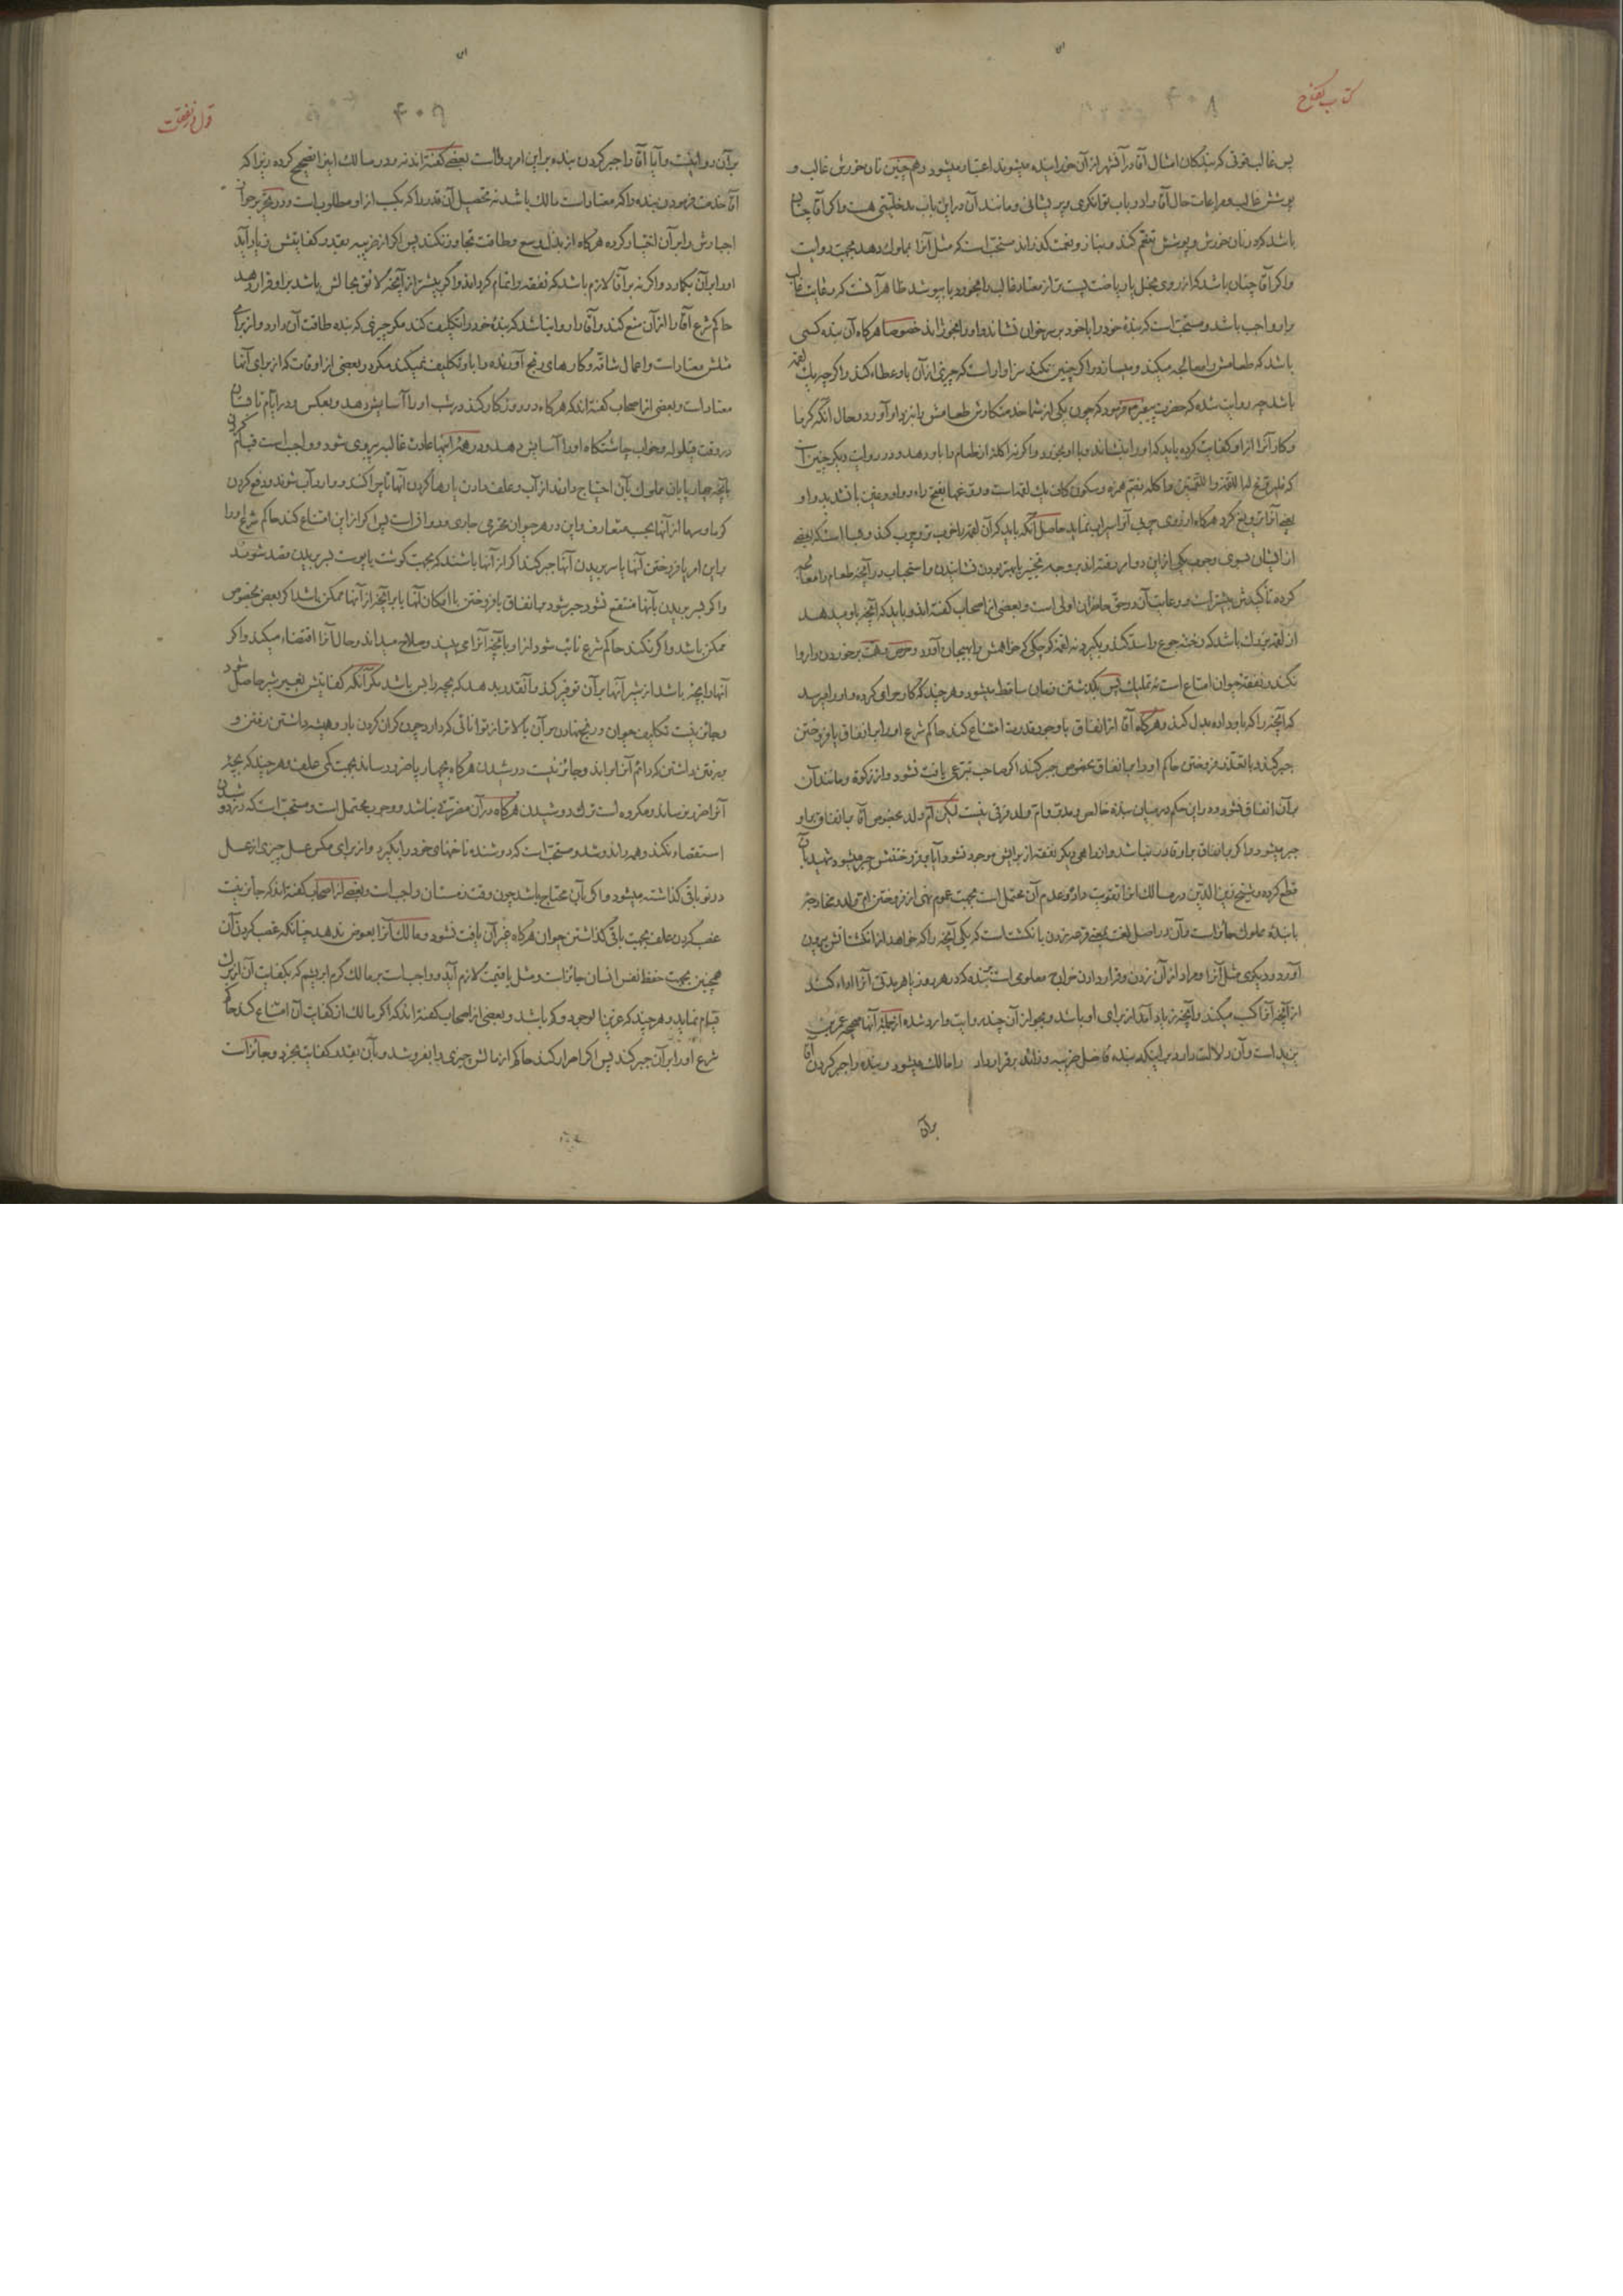 کتاب نکاح
۴۰۸
پس غالب قوتی که بندکان امثال آقا در آن شهر از آن خورانیده میشوند اعتبار میشود و هم چنین نان خورش غالب و
پوشش غالب و مراعات حال آقا را در باب توانکری و پریشانی و مانند آن در این باب مدخلیتی هست و اکر آقا چنان
باشد که در نان خورش و پوشش تنعّم کند و بناز و نعمت کذراند مستحبّ است که مثل آنرا بمملوک دهد بجهت روایت
و اکر آقا چنان باشد که از روی بخل یا ریاضت پست تر از معتاد غالب را بخورد یا بپوشد ظاهر آنست که رعایت غالب
براو واجب باشد و مستحبّ است که بندهٔ خود را با خود بر سر خوان نشاند و او را بخوراند خصوصا هرکاه آن بنده کسی
باشد که طعامش را معالجه میکند و میسازد و اکر چنین نکند سزاوار است که چیزی از آن باو عطاء کند و اکر چه یک لقمه
باشد چه روایت شده که حضرت پیغمبر فرمود که چون یکی از شما خدمتکارش طعامش را بنزد او آورد و حال آنکه کرما
و کار آنرا از او کفایت کرده باید که او را بنشاند و با او بخورد و اکرنه اکله از طعام را باو دهد و در روایت دیکر چنین است
که فلیروّغ لها اللقمة و اللقمتین و اکله بضم همزه و سکون کاف یک لقمه است و روّغها بفتح راء و واو و غین با تشدید واو
یعنی آنرا تر و چرب کرد هرکاه از روی چربی آنرا سیراب نماید حاصل آنکه باید که آن لقمه را خوب تر و چرب کند و بسا است که بعضی
از ایشان بسوی وجوب یکی از این دو امر رفته اند بر وجه تخییر با بهتر بودن نشانیدن و استحباب در آنچه طعام را معالجه
کرده تأکیدش بیشتر است و رعایت آن در حقّ حاضران اولی است و بعضی از اصحاب کفته اند و باید که آنچه باو میدهد
از لقمه بزرک باشد که رخنه جوع را سد کند و بکیرد نه لقمه کوچکی که خواهش را بهیجان آورد و حرص و نهمت بر خوردن را روا
نکند و نفقه حیوان امتاع است نه تملیک پس بکذشتن زمان ساقط میشود و هر چند که کار و حرامی کرده و او را میرسد
که آنچه را که باو داده بدل کند و هرکاه آقا از انفاق با وجود قدرت امتناع کند حاکم شرع او را بر انفاق یا فروختن
جبر کند و با تعذّر فروختن حاکم او را بر انفاق بخصوص جبر کند اکر صاحب تبرّعی یافت نشود و از زکوة و مانند آن
بر آن انفاق نشود و در این حکم در میان بندهٔ خالص و مدبّر و امّ ولد فرقی نیست لیکن امّ ولد بخصوص آقا بانفاق بر او
جبر میشود و اکر بانفاق براو قادر نباشد و از راهی دیکر نفقه از برایش موجود نشود آیا بفروختنش جبر میشود شهید بآن
قطع کرده و شیخ زین الدّین در مسالک آنرا تقویت داده و عدم آن محتمل است بجهت عموم نهی از فروختن امّ ولد و مخارجه
با بندهٔ مملوک جائز است و آن در اصل لغت بمعنی قرعه زدن با نکشت است که یکی آنچه را که خواهد از انکشتانش بیرون
آورد و دیکری مثل آنرا و مراد از آن زدن و قرار دادن خراج معلومی است بر بنده که در هر روز یا هر مدتی آنرا اداء کند
از آنچه آنرا کسب میکند و آنچه زیاد آید از برای او باشد و بجواز آن چند روایت وارد شده از جمله آنها صحیحه عمر بن
یزید است و آن دلالت دارد بر اینکه بنده فاضل ضریبه و زائد بر قرار داد را مالک میشود و بنده را جبر کردن آقا
بر آن
قول در نفقات
۴۰۹
بر آن روا نیست و آیا آقا را جبر کردن بنده بر این امر روا است بعضی کفته اند نه و در مسالک اینرا تصحیح کرده زیرا که
آقا خدمت فرمودن بنده را که معتاد است مالک باشد نه تحصیل آن قدر را که بکسب از او مطلوب است و در تحریر جواز
اجبارش را بر آن اختیار کرده هرکاه از بذل وسع و طاقت تجاوز نکند پس اکر از ضریبه بقدر کفایتش زیاد آید
او را بر آن بکارد و اکرنه بر آقا لازم باشد که نفقه را تمام کرداند و اکر بیشتر از آنچه لائق بحالش باشد براو قرار دهد
حاکم شرع آقا را از آن منع کند و آقا را روا نباشد که بندهٔ خود را تکلیف کند مکر چیزی که بنده طاقت آن دارد و از برای
مثلش معتاد است و اعمال شاقّه و کارهای رنج آورنده را باو تکلیف نمیکند مکر در بعضی از اوقات که از برای آنها
معتاد است و بعضی از اصحاب کفته اند که هرکاه در روز کار کند در شب او را آسایش دهد و بعکس و در ایّام تابستان
در وقت قیلوله و خواب چاشتگاه او را آسایش دهد و در همهٔ اینها عادت غالبه پیروی شود و واجب است قیام کردن
بآنچه چهار پایان مملوک بآن احتیاج دارند از آب و علف دادن یا رها کردن آنها تا چرا کنند و وارد آب شوند و دفع کردن
کرما و سرما از آنها بحسب متعارف و این در هر حیوان محترمی جاری و روا فر است پس اکر از این امتناع کند حاکم شرع او را
بر این امر یا فروختن آنها یا سر بریدن آنها جبر کند اکر از آنها باشند که بجهت کوشت یا پوست بسر بریدن قصد شوند
و اکر بسر بریدن بآنها منتفع نشود جبر شود بانفاق یا فروختن با امکان آنها یا بر آنچه از آنها ممکن باشد اکر بعض بخصوص
ممکن باشد و اکر نکند حاکم شرع نائب شود از او بآنچه آنرا می بیند و صلاح میداند و حال آنرا اقتضاء میکند و اکر
آنها را بچه باشد از شیر آنها بر آن توفیر کند و آنقدر بدهد که بچه را بس باشد مکر آنکه کفایتش بغیر شیر حاصل شود
و جائز نیست تکلیف حیوان و رنج نهادن بر آن بالاتر از توانائی که دارد چون کران کردن بار و همیشه داشتن رفتن و
برفتن داشتن که دائم آنرا براند و جائز نیست دوشیدن هرکاه بچهار پا ضرر رساند بجهت کمی علف و هر چند که بچهٔ
آنرا ضرر نرساند و مکروه است ترک دوشیدن هرکاه در آن مضرّتی نباشد و وجوب محتمل است و مستحبّ است که در دوشیدن
استقصاء نکند و همه را ندوشد و مستحبّ است که دوشنده ناخنهای خود را بکیرد و از برای مکس عسل چیزی از عسل
در تو باقی کذاشته میشود و اکر بآن محتاج باشد چون وقت زمستان واجب است و بعضی از اصحاب کفته اند که جائز نیست
غصب کردن علف بجهت باقی کذاشتن حیوان هرکاه غیر آن یافت نشود و مالک آنرا بعوض ندهد چنانکه غصب کردن آن
همچنین بجهت حفظ نفس انسان جائز است و مثل یا قیمت لازم آید و واجب است بر مالک کرم ابریشم که بکفایت آن از برک
قیام نماید و هر چند که عزیز الوجود و کم باشد و بعضی از اصحاب کفته اند که اکر مالک از کفایت آن امتناع کند حاکم
شرع او را بر آن جبر کند پس اکر اصرار کند حاکم از مالش چیزی را بفروشد و بآن بقدر کفایت بخرد و جائز است